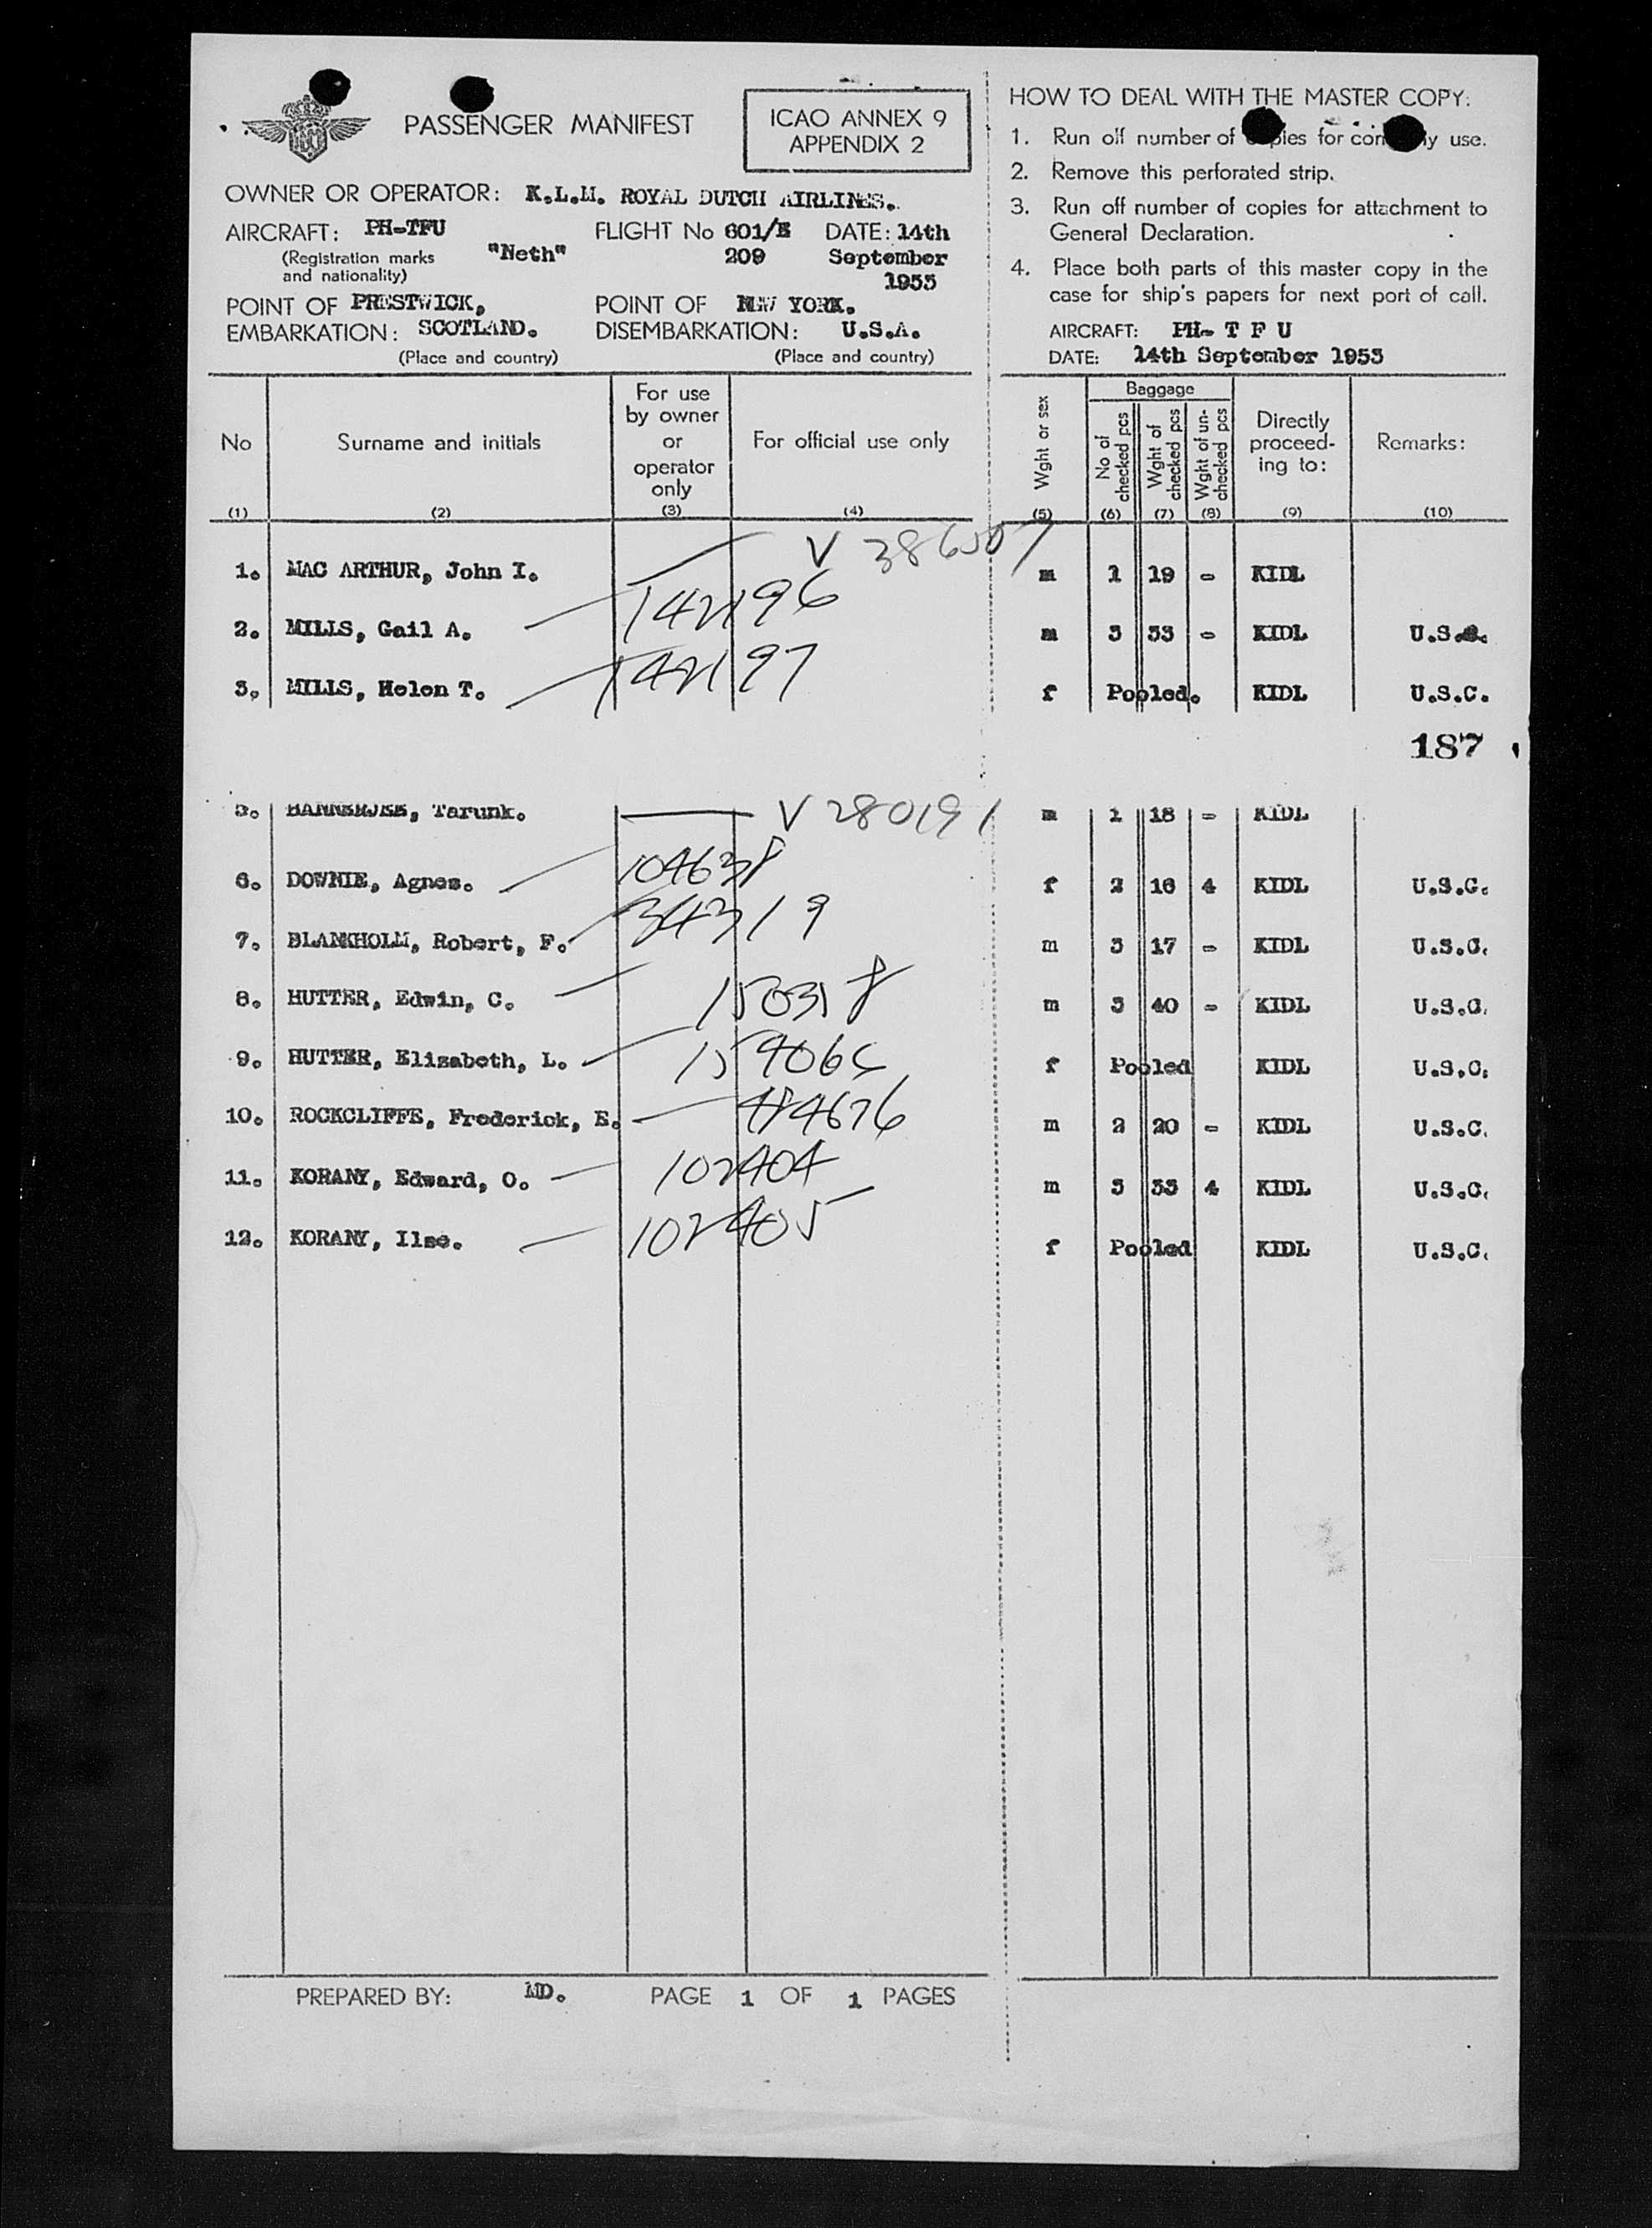 PASSENGER MANIFEST
ICAO ANNEX 9
APPENDIX 2
OWNER OR OPERATOR: K.L.M. ROYAL DUTCH AIRLINES.
AIRCRAFT: PH-TFU "Neth"
(Registration marks
and nationality)
FLIGHT No 601/E
209
DATE: 14th
September
1953
POINT OF PRESTWICK,
EMBARKATION: SCOTLAND.
(Place and country)
POINT OF NEW YORK.
DISEMBARKATION: U.S.A.
(Place and country)
HOW TO DEAL WITH THE MASTER COPY:
1. Run off number of for use.
2. Remove this perforated strip.
3. Run off number of copies for attachment to
General Declaration.
4. Place both parts of this master copy in the
case for ship's papers for next port of call.
AIRCRAFT: PH- T F U
DATE: 14th September 1953
No
(1)
Surname and initials
(2)
For use
by owner
or
operator
only
(3)
For official use only
(4)
Wght or sex
(5)
Baggage
No of
checked pcs
(6)
Wght of
checked pcs
(7)
Wght of un-
checked pcs
(8)
Directly
proceed-
ing to:
(9)
Remarks:
(10)
1. MAC ARTHUR, John I. V 386507 m 1 19 - KIDL
2. MILLS, Gail A. 142196 m 3 33 - KIDL
3. MILLS, Helen T. 142197 f Pooled. KIDL U.S.C.
187
5. BANNERJEE, Tarunk. V 280191 m 1 18 - KIDL
6. DOWNIE, Agnes. 104638 f 2 16 4 KIDL U.S.C.
7. BLANKHOLM, Robert, F. 34319 m 3 17 - KIDL U.S.C.
8. HUTTER, Edwin, C. m 3 40 - KIDL U.S.C.
9. HUTTER, Elizabeth, L. f Pooled KIDL U.S.C.
10. ROCKCLIFFE, Frederick, E. 484676 m 2 20 - KIDL U.S.C.
11. KORANY, Edward, O. 102404 m 3 33 4 KIDL U.S.C.
12. KORANY, Ilse. 102405 f Pooled KIDL U.S.C.
PREPARED BY: MD. PAGE 1 OF 1 PAGES